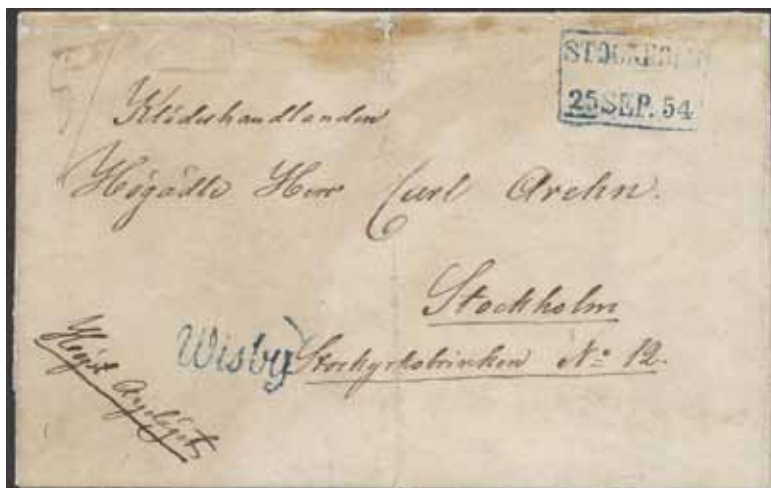 STOCKHOLM
25 SEP. 54
Klädeshandlanden
Högädle Herr Carl Arehn.
Stockholm
Wisby
Storkyrkobrinken No 12.
Högst Angeläget